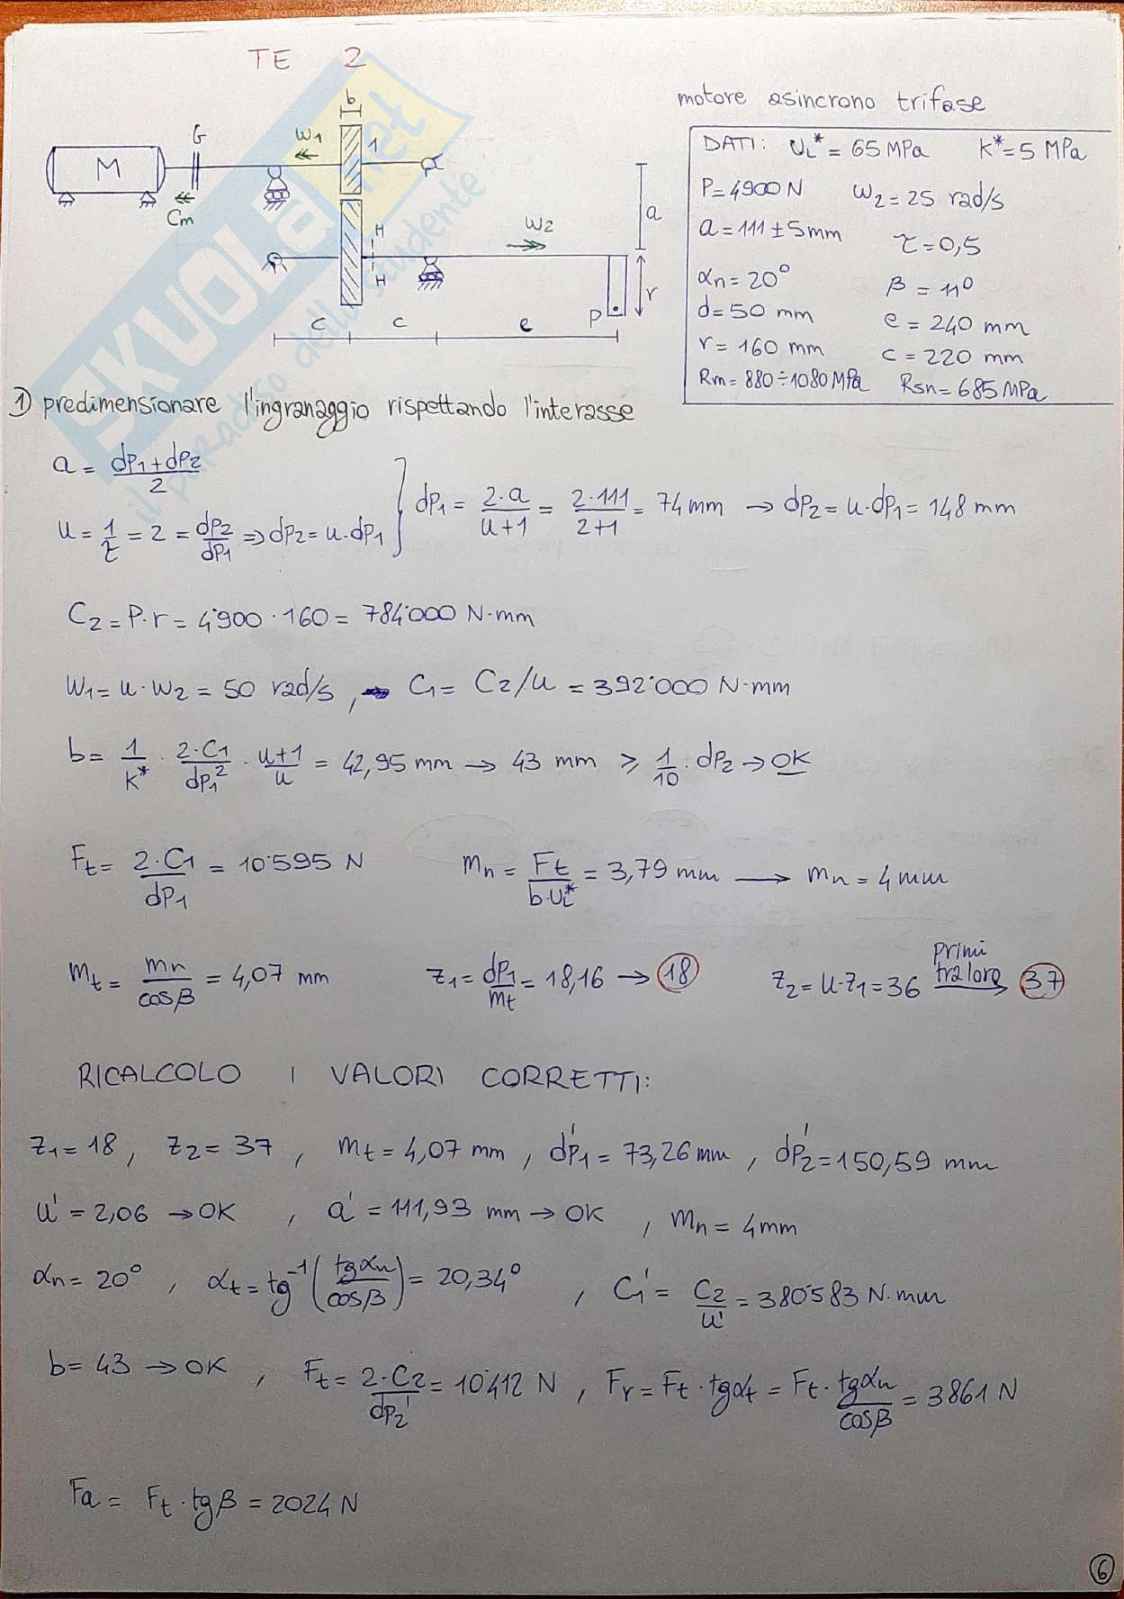 TE 2
motore asincrono trifase
b
G
ω1
1
M
Cm
H
H
ω2
a
r
P
c
c
e
DATI: UL* = 65 MPa K* = 5 MPa
P = 4900 N ω2 = 25 rad/s
a = 111 ± 5 mm τ = 0,5
αn = 20° β = 11°
d = 50 mm e = 240 mm
r = 160 mm c = 220 mm
Rm = 880 ÷ 1080 MPa Rsn = 685 MPa
SKUOLA.net
il paradiso dello studente
1) predimensionare l'ingranaggio rispettando l'interasse
a = (dp1 + dp2)/2
u = 1/τ = 2 = dp2/dp1 => dp2 = u·dp1 } dp1 = 2·a/(u+1) = 2·111/(2+1) = 74 mm → dp2 = u·dp1 = 148 mm
C2 = P·r = 4'900 · 160 = 784'000 N·mm
ω1 = u·ω2 = 50 rad/s , → C1 = C2/u = 392'000 N·mm
b = 1/K* · 2·C1/dp1² · (u+1)/u = 42,95 mm → 43 mm ≥ 1/10 · dp2 → OK
Ft = 2·C1/dp1 = 10'595 N mn = Ft/(b·UL*) = 3,79 mm → mn = 4 mm
mt = mn/cosβ = 4,07 mm z1 = dp1/mt = 18,16 → 18 z2 = u·z1 = 36 primi tra loro → 37
RICALCOLO I VALORI CORRETTI:
z1 = 18 , z2 = 37 , mt = 4,07 mm , dp1' = 73,26 mm , dp2' = 150,59 mm
u' = 2,06 → OK , a' = 111,93 mm → OK , mn = 4 mm
αn = 20° , αt = tg⁻¹(tgαn/cosβ) = 20,34° , C1' = C2/u' = 380'583 N·mm
b = 43 → OK , Ft = 2·C2/dp2' = 10'412 N , Fr = Ft·tgαt = Ft·tgαn/cosβ = 3861 N
Fa = Ft·tgβ = 2024 N
6